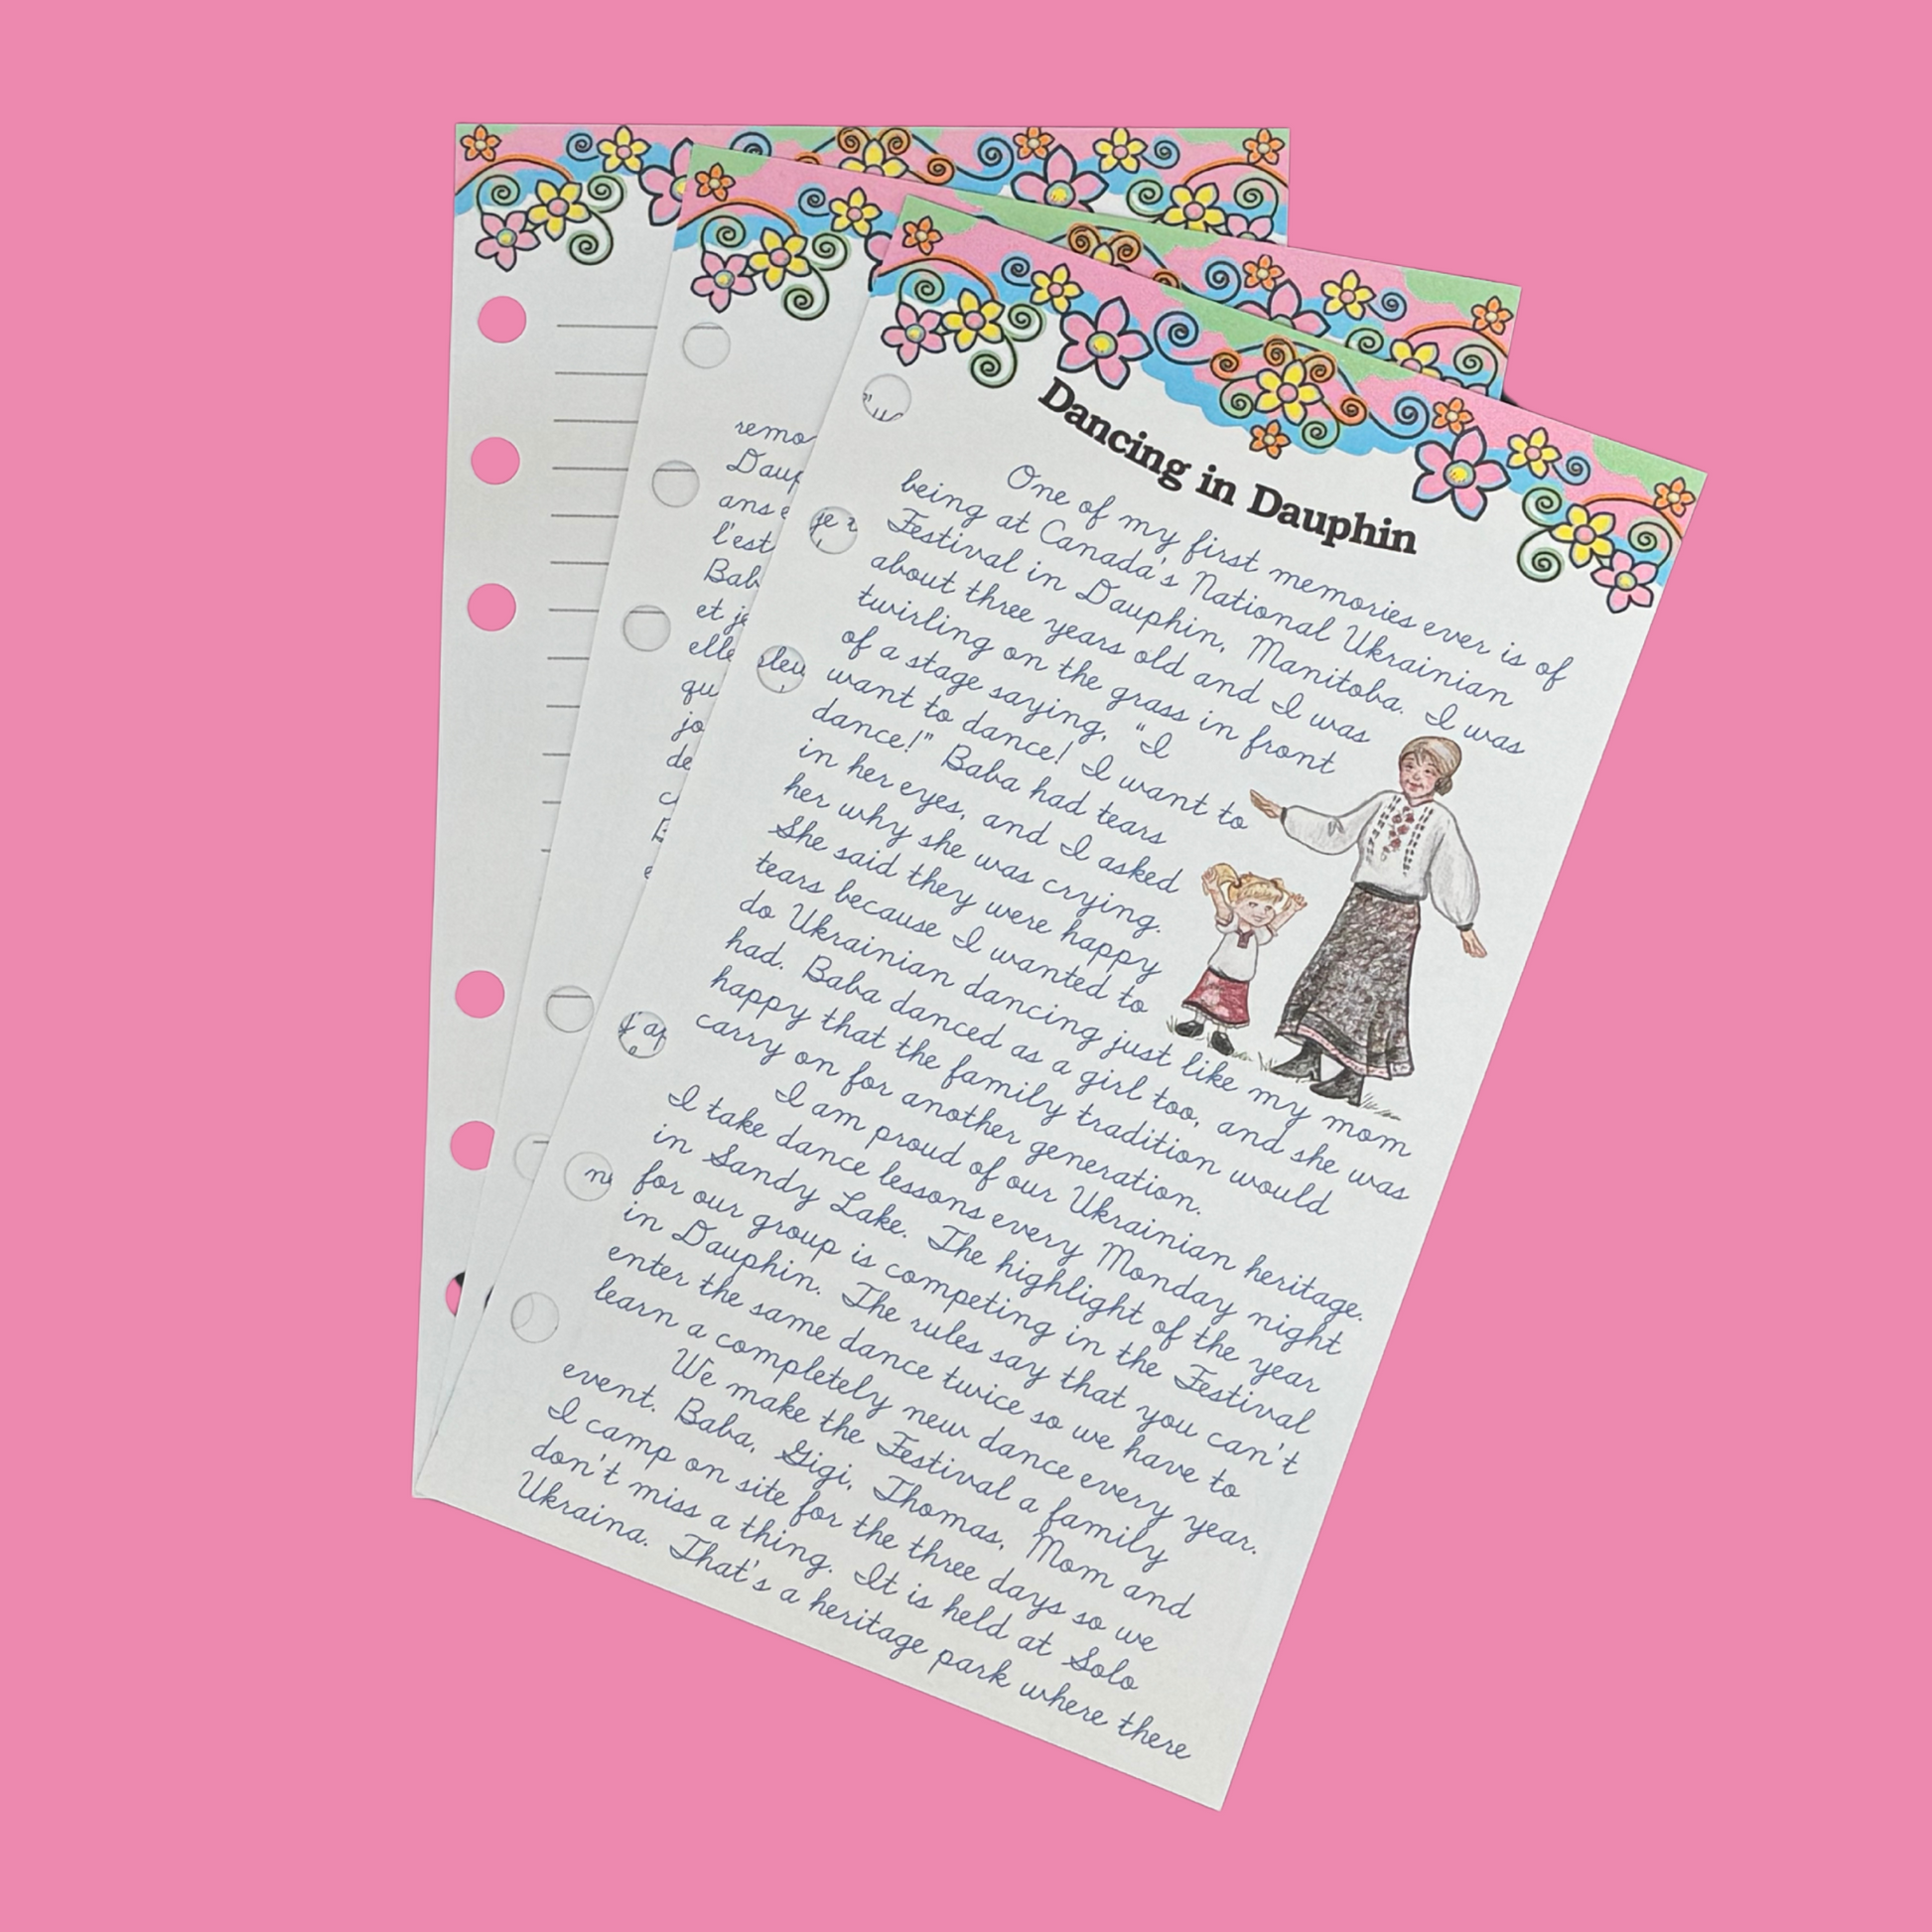 Dancing in Dauphin
One of my first memories ever is of
being at Canada's National Ukrainian
Festival in Dauphin, Manitoba. I was
about three years old and I was
twirling on the grass in front
of a stage saying, "I
want to dance! I want to
dance!" Baba had tears
in her eyes, and I asked
her why she was crying.
She said they were happy
tears because I wanted to
do Ukrainian dancing just like my mom
had. Baba danced as a girl too, and she was
happy that the family tradition would
carry on for another generation.
I am proud of our Ukrainian heritage.
I take dance lessons every Monday night
in Sandy Lake. The highlight of the year
for our group is competing in the Festival
in Dauphin. The rules say that you can't
enter the same dance twice so we have to
learn a completely new dance every year.
We make the Festival a family
event. Baba, Gigi, Thomas, Mom and
I camp on site for the three days so we
don't miss a thing. It is held at Solo
Ukraina. That's a heritage park where there
remo
Daup
ans
l'est
Bab
et je
elle
qu
jo
de